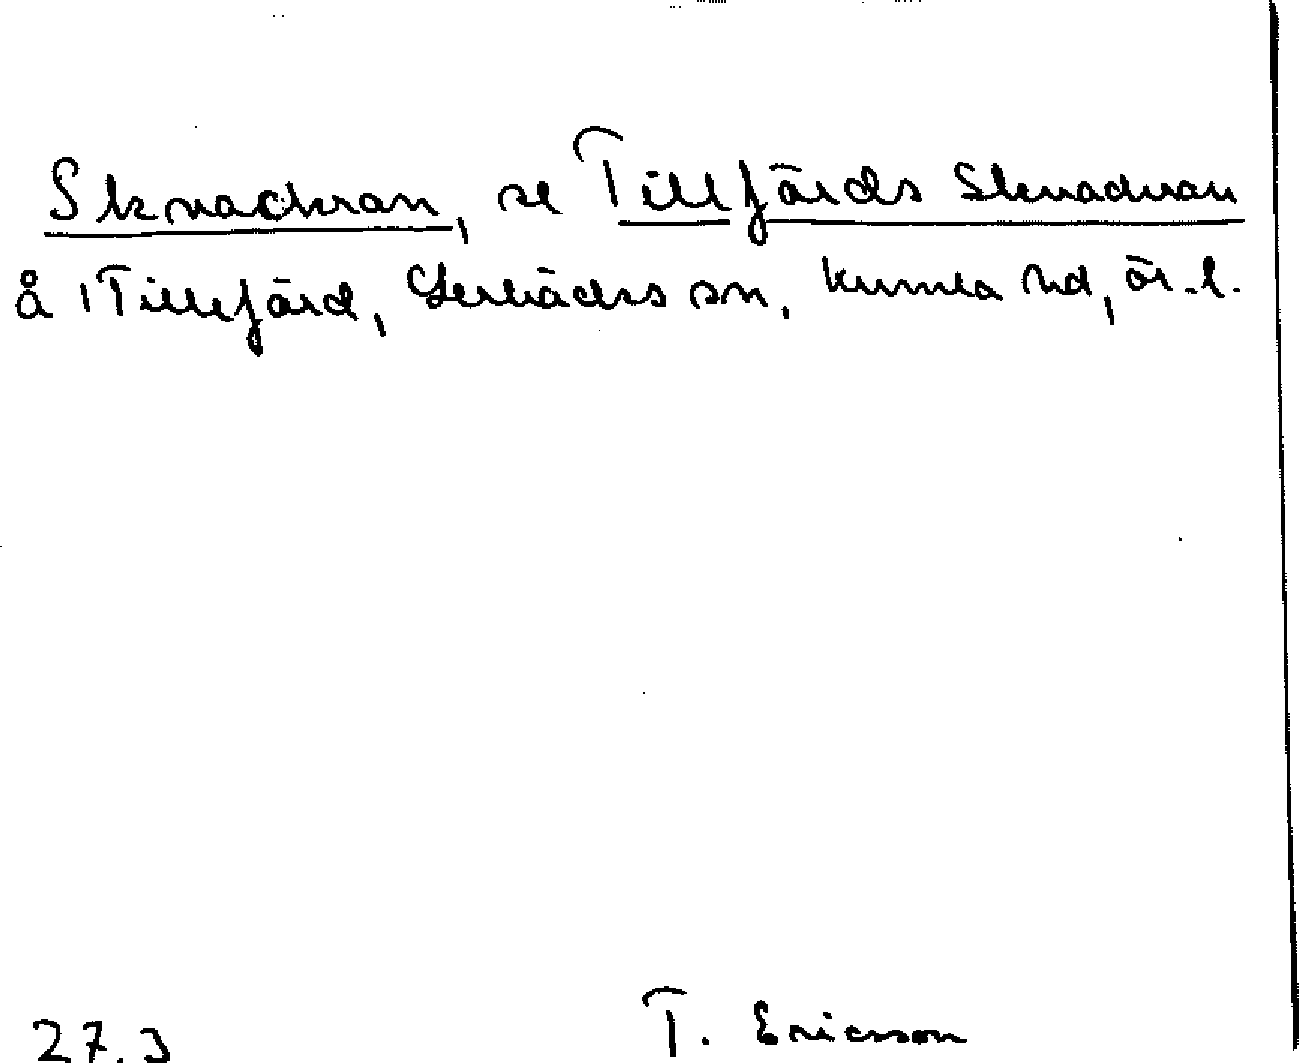 Skvadran, se Tillfärds Skvadran
å 1 Tillfärd, Lerbäcks sn, Kumla hd, ör. l.
27.3 T. Ericsson